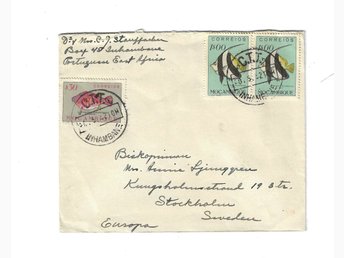 Mrs. P. J. Stauffacher
Box 41 Inhambane
Portuguese East Africa
CORREIOS
CORREIOS
1$00
1$00
MOÇAMBIQUE
MOÇAMBIQUE
$50
C.T.T.
INHAMBANE
C.T.T.
INHAMBANE
Biskopinnan
Mrs. Ljunggren
Kungsholmsstrand 19 2 tr.
Stockholm
Sweden
Europa